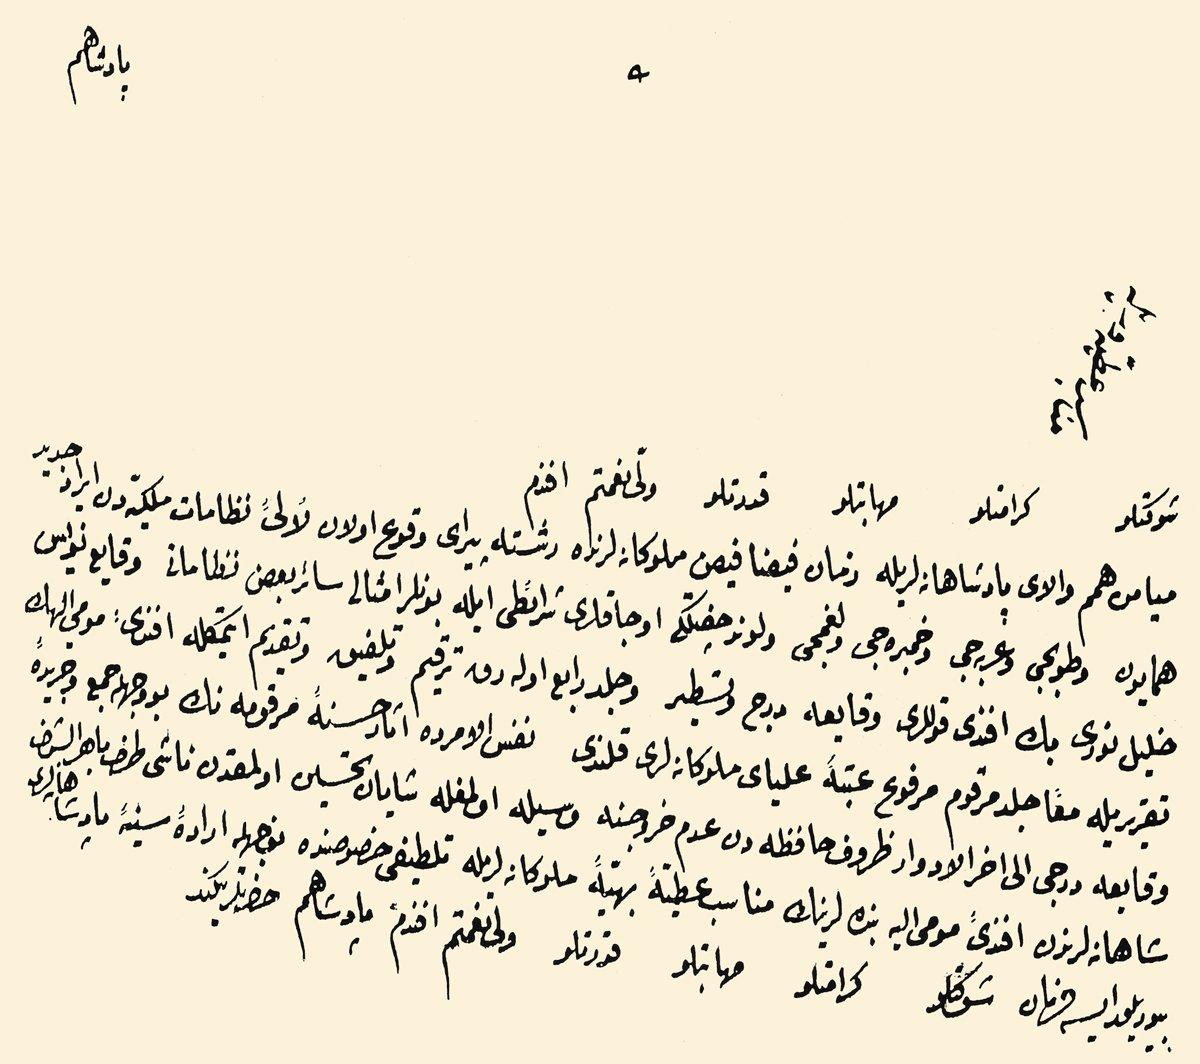 پادشاهم
مناسب عطیه ویریله
شوکتلو کرامتلو مهابتلو قدرتلو ولی نعمتم افندم
میامن همم والای پادشاهانه لریله زمان فیضا فیض ملوکانه لرنده رشته پیرای وقوع اولان لألئ نظامات ملکیه دن ایراد جدید
همایون وطوپجی وعربه جی وخمبره جی ولغمجی ولوند چفتلکی اوجاقلری شرائطی ایله بونلر امثالی سائر بعض نظاماتی وقایع نویس
خلیل نوری بك افندی قوللری وقایعه درج وتسطیر وجلد رابع اوله رق ترقیم وتلفیق وتقدیم ایتمکله افندئ مومی الیهك
تقریریله معًا جلد مرقوم مرفوع عتبۀ علیای ملوکانه لری قلندی نفس الامرده آثار حسنۀ مرقومه نك بو وجهله جمع وجریدۀ
وقایعه درجی الی اخر الادوار ظروف حافظه دن عدم خروجنه وسیله اولمغله شایان تحسین اولمقدن ناشی طرف باهر الشرف
شاهانه لرندن افندئ مومی الیه بنده لرینك مناسب عطیۀ بهیۀ ملوکانه لریله تلطیفی خصوصنده نوجهله ارادۀ سنیۀ پادشاهانه لری
بیوریلور ایسه فرمان شوکتلو کرامتلو مهابتلو قدرتلو ولی نعمتم افندم پادشاهم حضرتلرینکدر